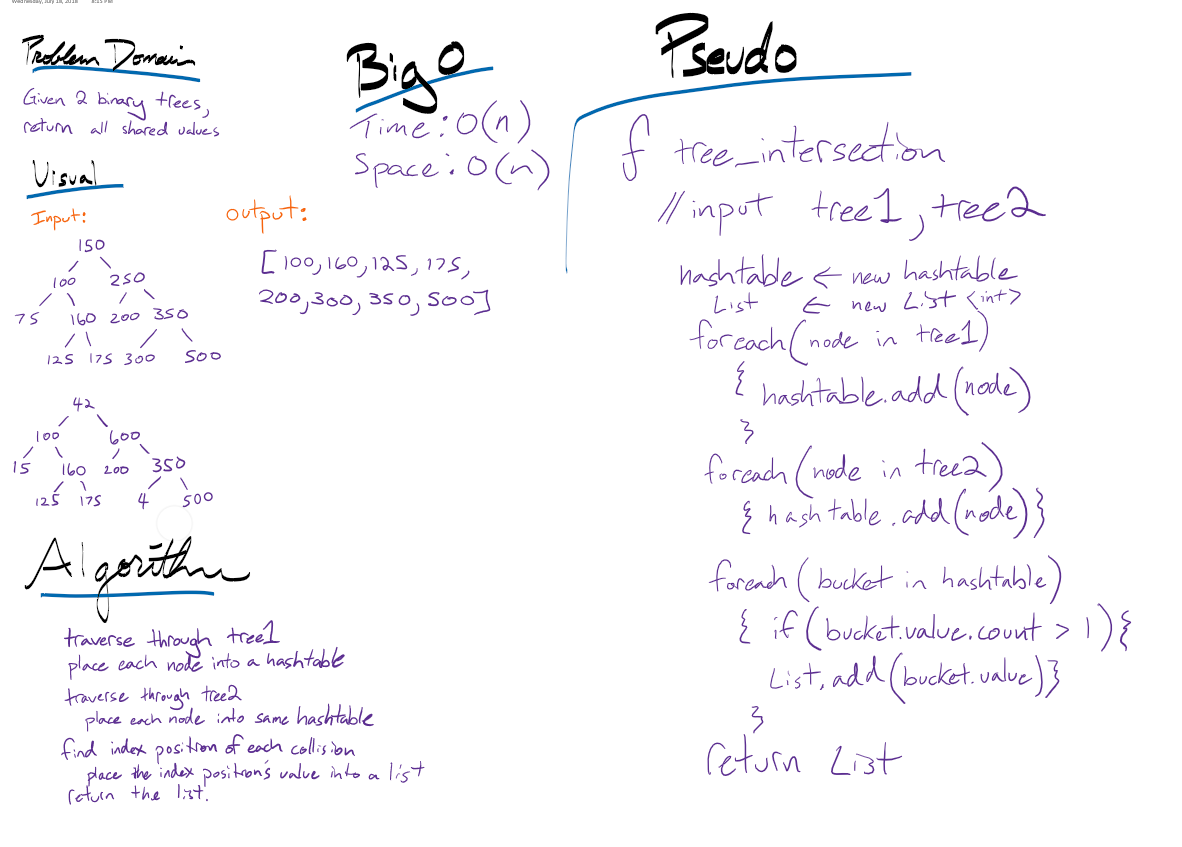 Wednesday, July 18, 2018 8:15 PM
Problem Domain
Given 2 binary trees,
return all shared values
Visual
Input:
150
100 250
75 160 200 350
125 175 300 500
42
100 600
15 160 200 350
125 175 4 500
output:
[100,160,125,175,
200,300,350,500]
Algorithm
traverse through tree1
place each node into a hashtable
traverse through tree2
place each node into same hashtable
find index position of each collision
place the index position's value into a list
return the list.
Big O
Time: O(n)
Space: O(n)
Pseudo
f tree_intersection
//input tree1, tree2
hashtable ← new hashtable
List ← new List <int>
foreach(node in tree1)
{ hashtable.add(node)
}
foreach(node in tree2)
{ hashtable.add(node)}
foreach(bucket in hashtable)
{ if(bucket.value.count > 1){
List.add(bucket.value)}
}
return List